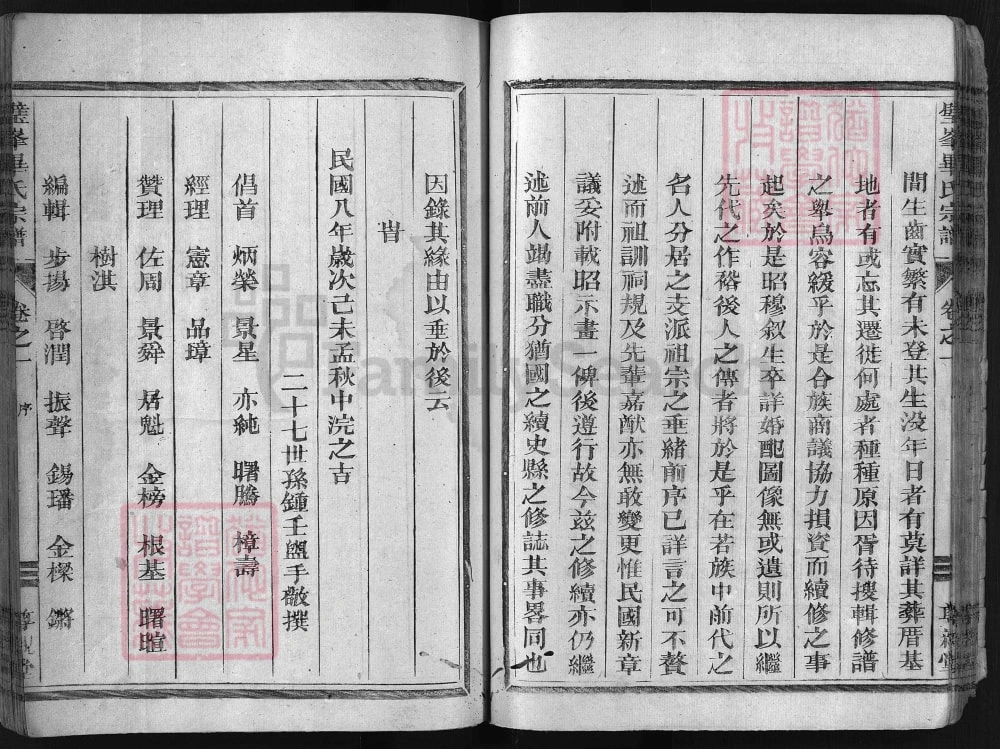 璧峯畢氏宗譜 卷之一
間生齒實繁有未登其生沒年日者有莫詳其葬厝基
地者有或忘其遷徙何處者種種原因胥待搜輯修譜
之舉烏容緩乎於是合族商議協力損資而續修之事
起矣於是昭穆叙生卒詳婚配圖像無或遺則所以繼
先代之作裕後人之傳者將於是乎在若族中前代之
名人分居之支派祖宗之垂緒前序已詳言之可不贅
述而祖訓祠規及先輩嘉猷亦無敢變更惟民國新章
議妥附載昭示畫一俾後遵行故今兹之修續亦仍繼
述前人竭盡職分猶國之續史縣之修誌其事畧同也
因錄其緣由以垂於後云
旹
民國八年歲次己未孟秋中浣之吉
二十七世孫鍾壬盥手敬撰
倡首 炳榮 景星 亦純 曙騰 樟壽
經理 憲章 品璋
贊理 佐周 景舜 居魁 金榜 根基 曙暄
樹淇
編輯 步揚 啓潤 振聲 錫璠 金樑 鏘
璧峯畢氏宗譜 卷之一 序
FamilySearch